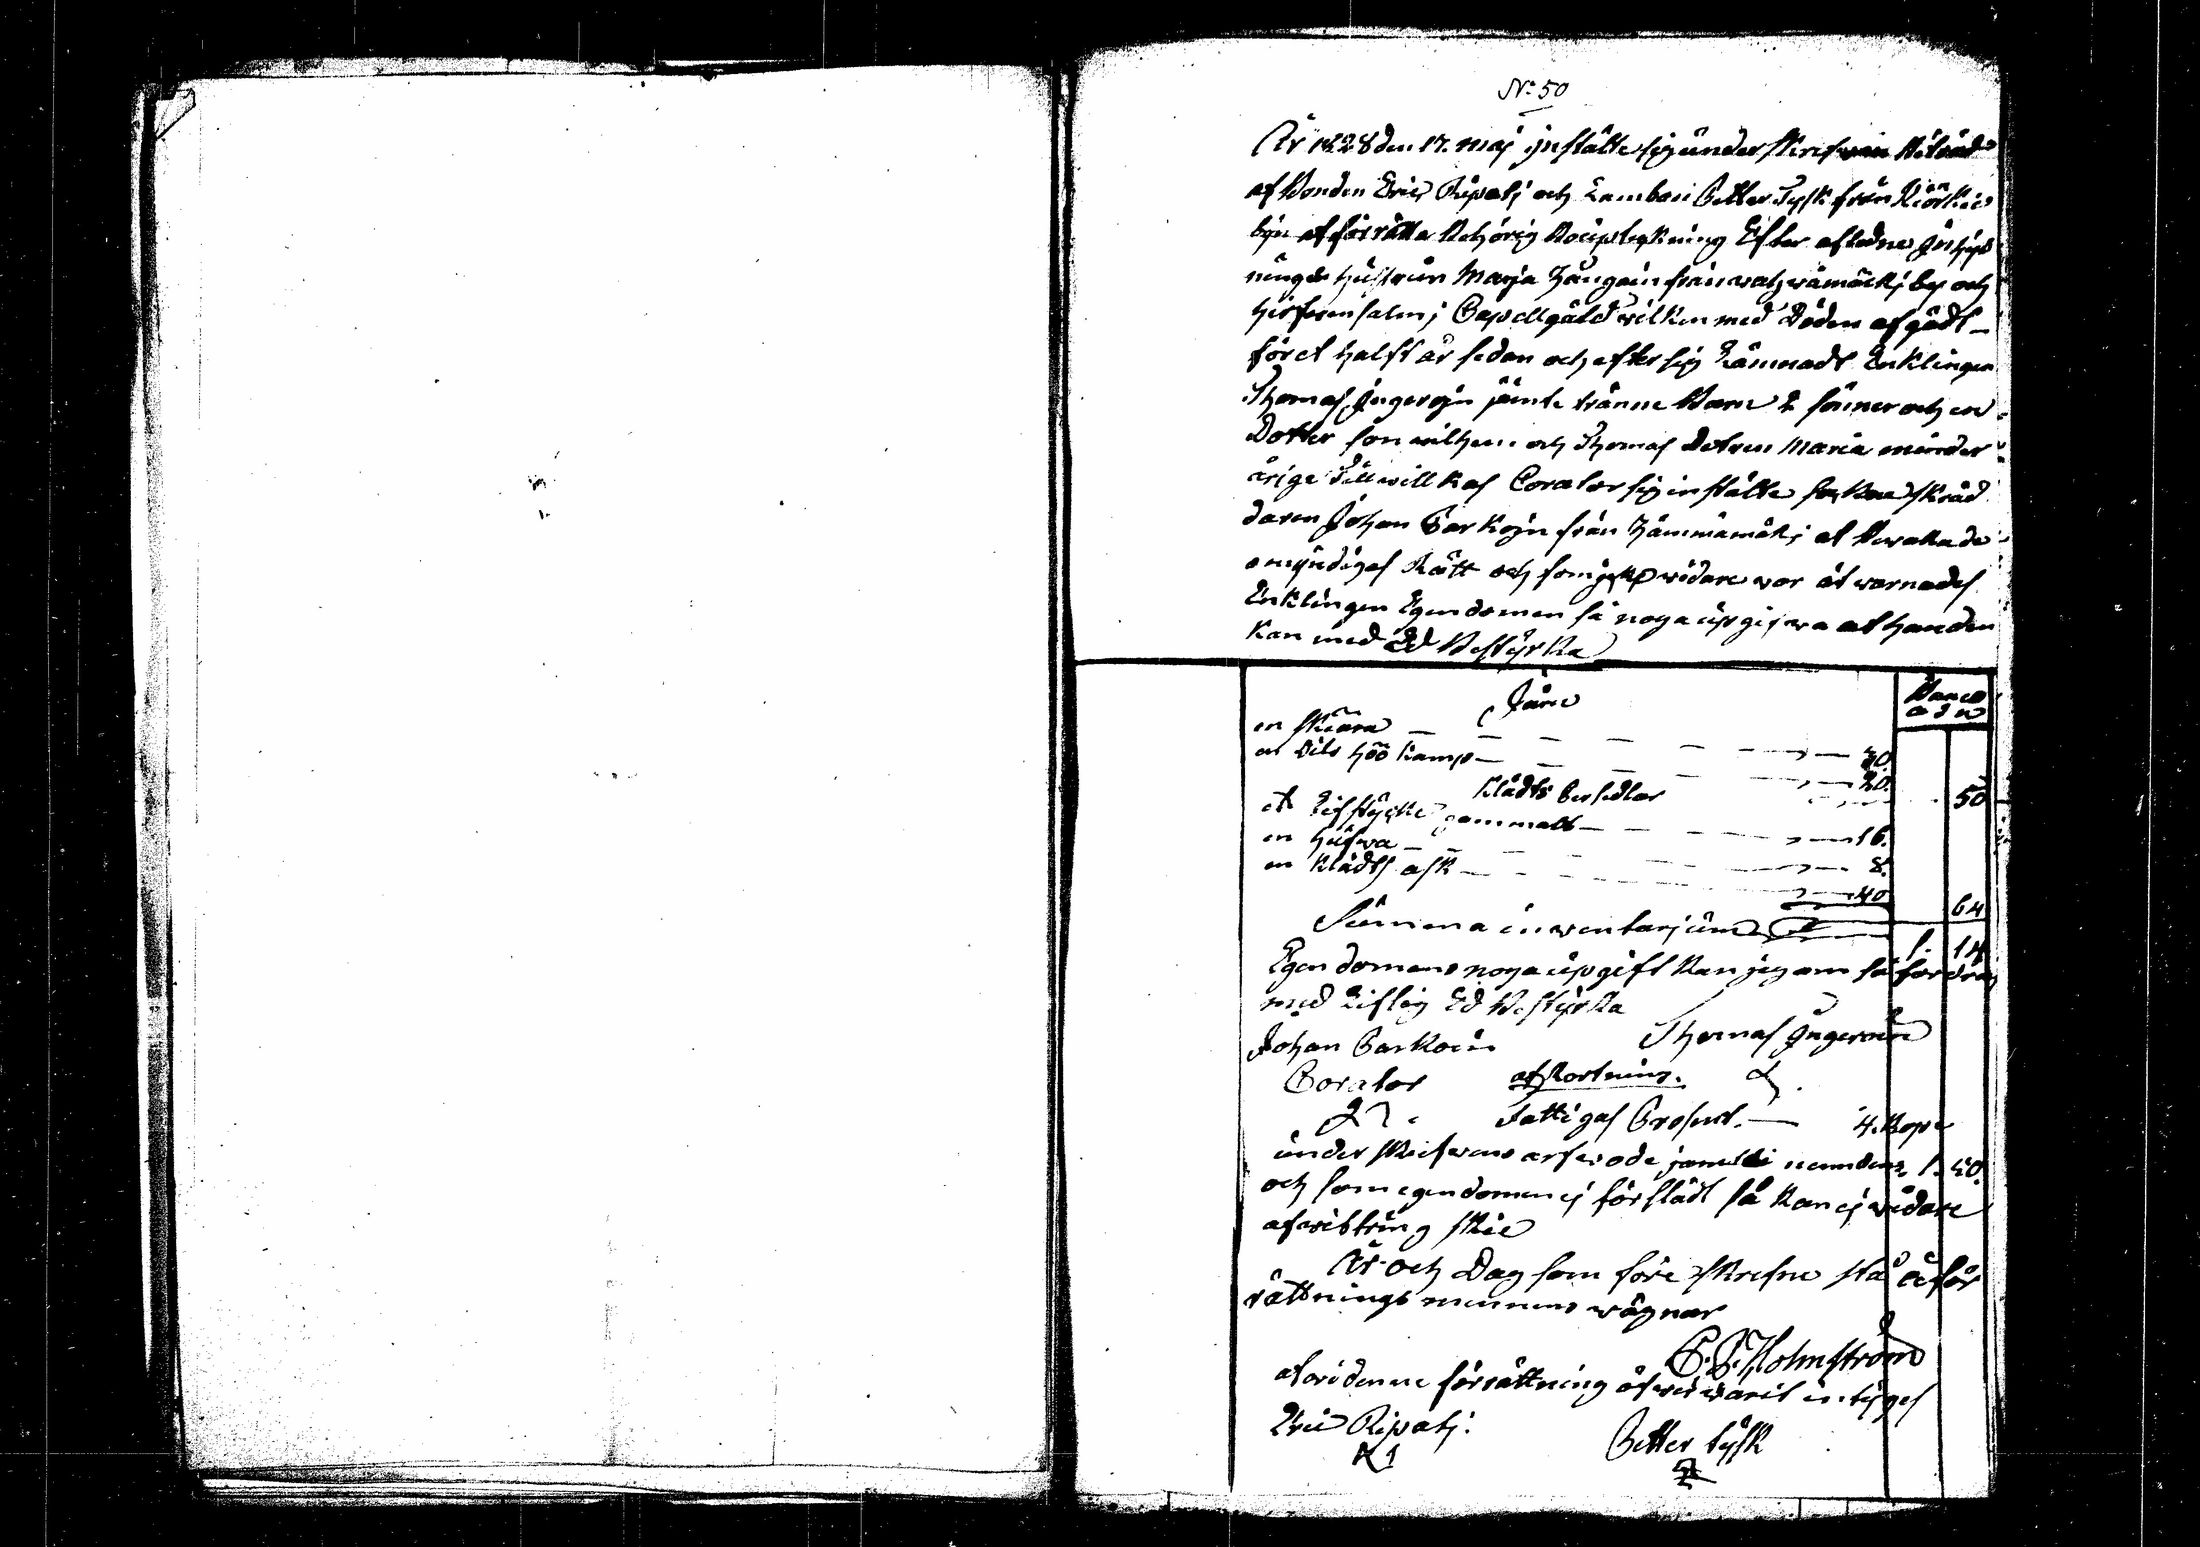 No: 50
År 1828 den 17. maj instälte sig underskrefvan biträd
af Bonden Eric Ripatj och Lambon Petter Tysk från Kiörkie
byn at förrätta behörig Boupteckning Efter aflidne Inhys
hustrun Marja från wahwamäckj by och
Capellgäld wilken med Döden afgådt
för et halft år sedan och efter sig Lämnadt Enklingen
Thomas Ingeroin jämte tränne Barn 2 söner och en
Dotter son wilhem och Thomas Dotren Maria minder
årige Till willkas Corator sig instälte skräd
daren Johan Parkoin från Hämmämäki at bevakade
omyndigas Rätt och som ej widare war åtwarnades
Enklingen Egendomen så noga upgifwa at han den
kan med Ed Bestyrka
Järn
Banco
en skiära — 30.
en dito höö kamp — 20. 50
klädts Persedlar
et Lifstycke gammalt — 16.
en hufwa — 8.
en klädts ask — 40 64
Summa inwentarjum 1. 14
Egendomens noga upgift kan jag om så fordras
med Liflig Ed Bestyrka
Johan Parkoin Thomas Ingeroin
Corator afkortning.
Fattigas Prosent. — 4. kop
underskrifwens arfwode jamte 1. 50.
och som egendomen ej förslådt så kan ej widare
afwittring skie
År och Dag som före skrefne stå å för
rättnings mennens wägnar
C. J. Holmström
at wi denne förrättning öfwerwarit intyges
Eric Ripatj. Petter tysk